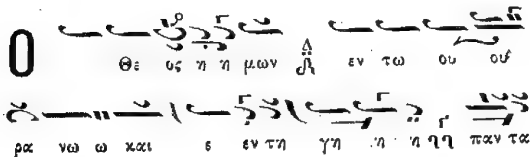 Ο Θε ος η η μων Δι εν τω ου ου
ρα νω ω και ε εν τη γη η η ηη παν τα